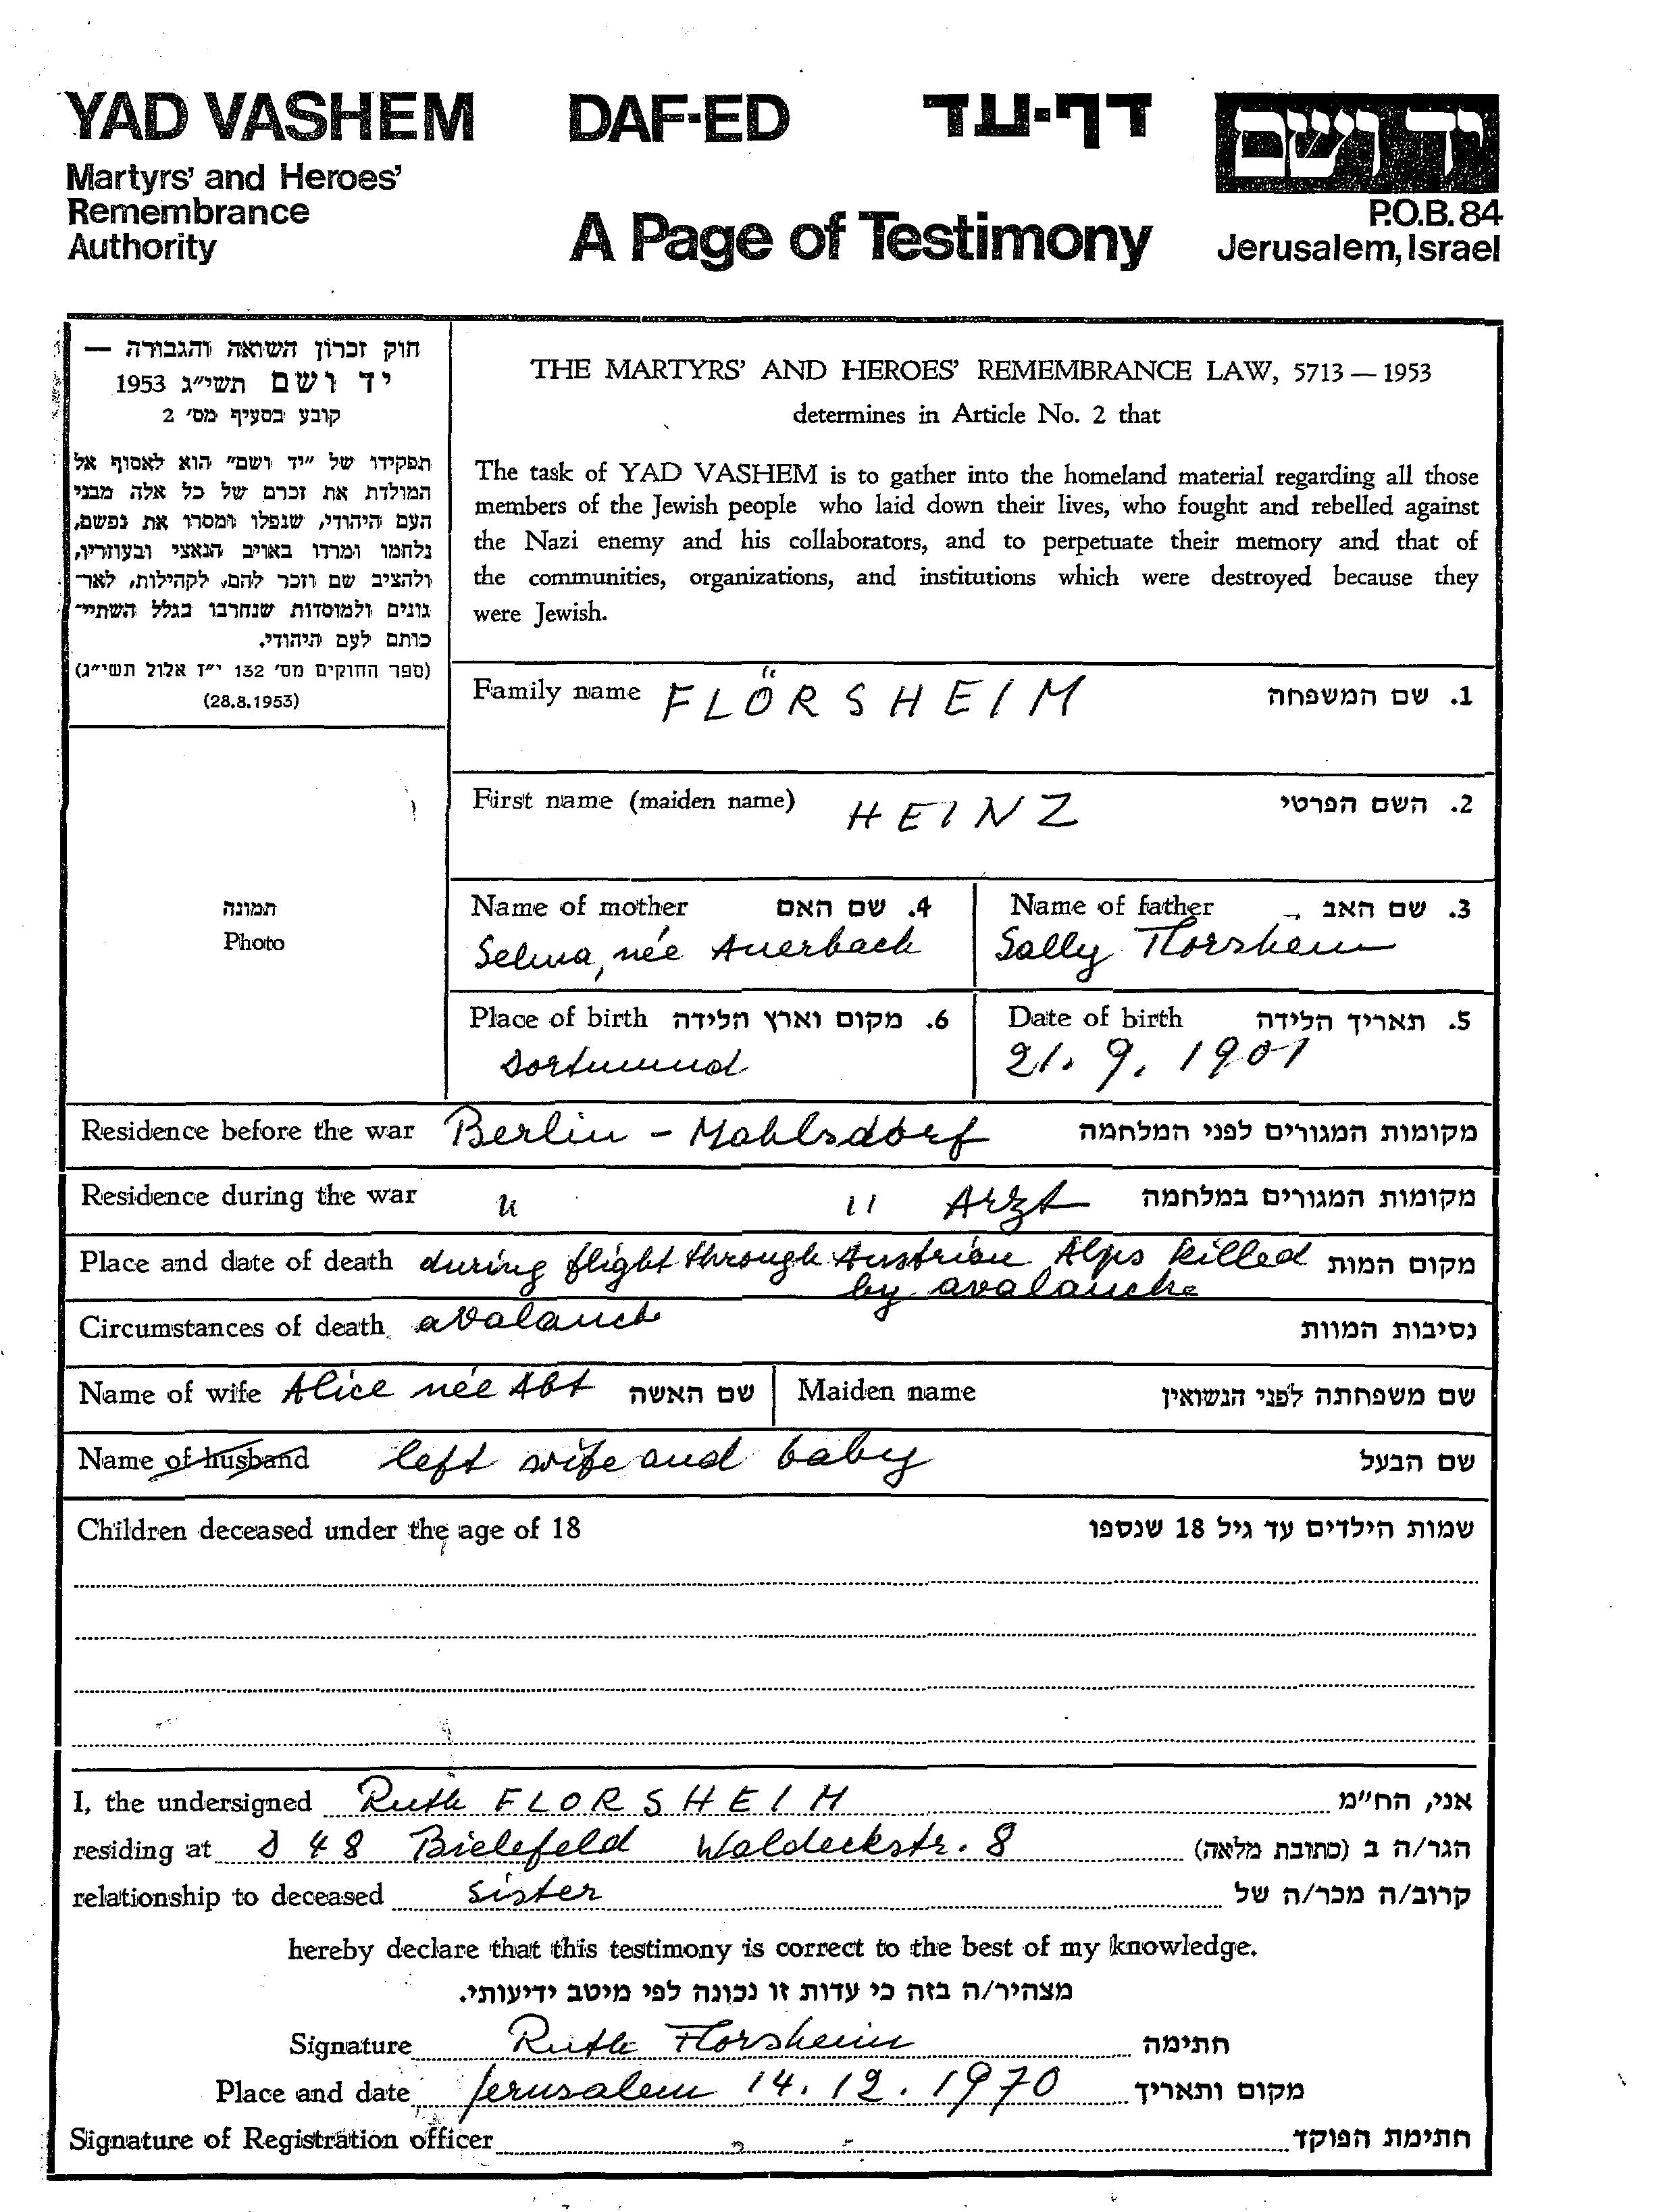 YAD VASHEM DAF-ED דף-עד יד ושם
Martyrs' and Heroes'
Remembrance
Authority
A Page of Testimony
P.O.B. 84
Jerusalem, Israel
חוק זכרון השואה והגבורה —
יד ושם תשי״ג 1953
קובע בסעיף מס׳ 2
תפקידו של ״יד ושם״ הוא לאסוף אל
המולדת את זכרם של כל אלה מבני
העם היהודי, שנפלו ומסרו את נפשם,
נלחמו ומרדו באויב הנאצי ובעוזריו,
ולהציב שם וזכר להם, לקהילות, לאר־
גונים ולמוסדות שנחרבו בגלל השתיי־
כותם לעם היהודי.
(ספר החוקים מס׳ 132 י״ז אלול תשי״ג)
(28.8.1953)
THE MARTYRS' AND HEROES' REMEMBRANCE LAW, 5713 — 1953
determines in Article No. 2 that
The task of YAD VASHEM is to gather into the homeland material regarding all those
members of the Jewish people who laid down their lives, who fought and rebelled against
the Nazi enemy and his collaborators, and to perpetuate their memory and that of
the communities, organizations, and institutions which were destroyed because they
were Jewish.
Family name FLÖRSHEIM 1. שם המשפחה
First name (maiden name) HEINZ 2. השם הפרטי
תמונה
Photo
Name of mother 4. שם האם
Selma, née Auerbach
Name of father 3. שם האב
Sally Florsheim
Place of birth 6. מקום וארץ הלידה
Dortmund
Date of birth 5. תאריך הלידה
21. 9. 1901
Residence before the war Berlin - Mahlsdorf מקומות המגורים לפני המלחמה
Residence during the war " " Arzt מקומות המגורים במלחמה
Place and date of death during flight through Austrian Alps killed מקום המות
by avalanche
Circumstances of death avalanche נסיבות המוות
Name of wife Alice née Abt שם האשה Maiden name שם משפחתה לפני הנשואין
Name of husband left wife and baby שם הבעל
Children deceased under the age of 18 שמות הילדים עד גיל 18 שנספו
I, the undersigned Ruth FLORSHEIM אני, הח״מ
residing at D 48 Bielefeld Waldeckstr. 8 הגר/ה ב (כתובת מלאה)
relationship to deceased sister קרוב/ה מכר/ה של
hereby declare that this testimony is correct to the best of my knowledge.
מצהיר/ה בזה כי עדות זו נכונה לפי מיטב ידיעותי.
Signature Ruth Florsheim חתימה
Place and date Jerusalem 14. 12. 1970 מקום ותאריך
Signature of Registration officer חתימת הפוקד